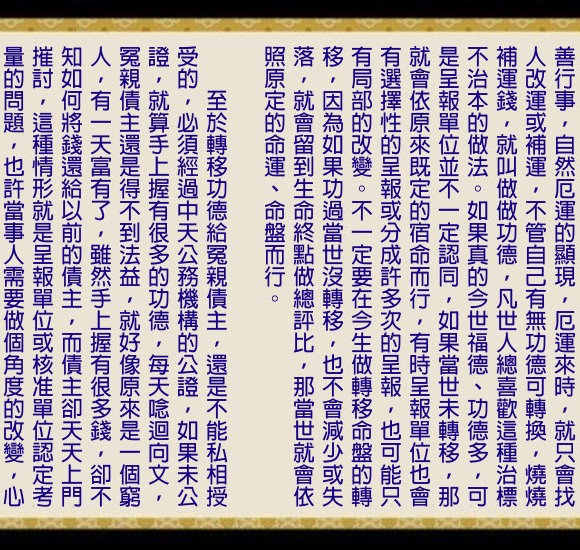 善行事，自然厄運的顯現，厄運來時，就只會找
人改運或補運，不管自己有無功德可轉換，燒燒
補運錢，就叫做做功德，凡世人總喜歡這種治標
不治本的做法。如果真的今世福德、功德多，可
是呈報單位並不一定認同，如果當世未轉移，那
就會依原來既定的宿命而行，有時呈報單位也會
有選擇性的呈報或分成許多次的呈報，也可能只
有局部的改變。不一定要在今生做轉移命盤的轉
移，因為如果功過當世沒轉移，也不會減少或失
落，就會留到生命終點做總評比，那當世就會依
照原定的命運、命盤而行。
至於轉移功德給冤親債主，還是不能私相授
受的，必須經過中天公務機構的公證，如果未公
證，就算手上握有很多的功德，每天唸迴向文，
冤親債主還是得不到法益，就好像原來是一個窮
人，有一天富有了，雖然手上握有很多錢，卻不
知如何將錢還給以前的債主，而債主卻天天上門
摧討，這種情形就是呈報單位或核准單位認定考
量的問題，也許當事人需要做個角度的改變，心